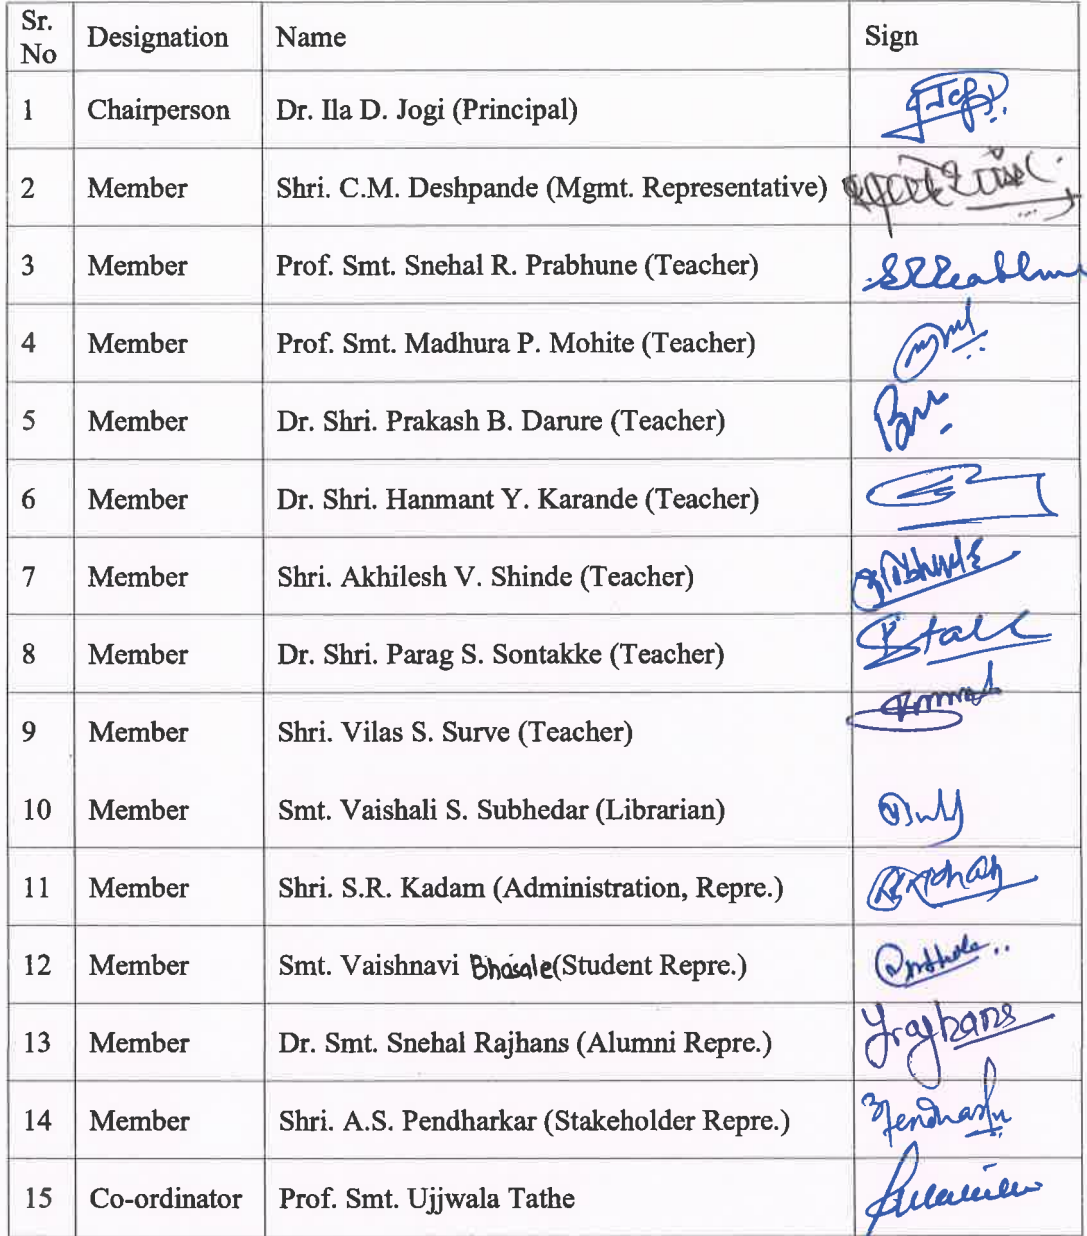 Sr. No Designation Name Sign
1 Chairperson Dr. Ila D. Jogi (Principal)
2 Member Shri. C.M. Deshpande (Mgmt. Representative)
3 Member Prof. Smt. Snehal R. Prabhune (Teacher)
4 Member Prof. Smt. Madhura P. Mohite (Teacher)
5 Member Dr. Shri. Prakash B. Darure (Teacher)
6 Member Dr. Shri. Hanmant Y. Karande (Teacher)
7 Member Shri. Akhilesh V. Shinde (Teacher)
8 Member Dr. Shri. Parag S. Sontakke (Teacher)
9 Member Shri. Vilas S. Surve (Teacher)
10 Member Smt. Vaishali S. Subhedar (Librarian)
11 Member Shri. S.R. Kadam (Administration, Repre.)
12 Member Smt. Vaishnavi Bhosale(Student Repre.)
13 Member Dr. Smt. Snehal Rajhans (Alumni Repre.) Yrajhans
14 Member Shri. A.S. Pendharkar (Stakeholder Repre.)
15 Co-ordinator Prof. Smt. Ujjwala Tathe